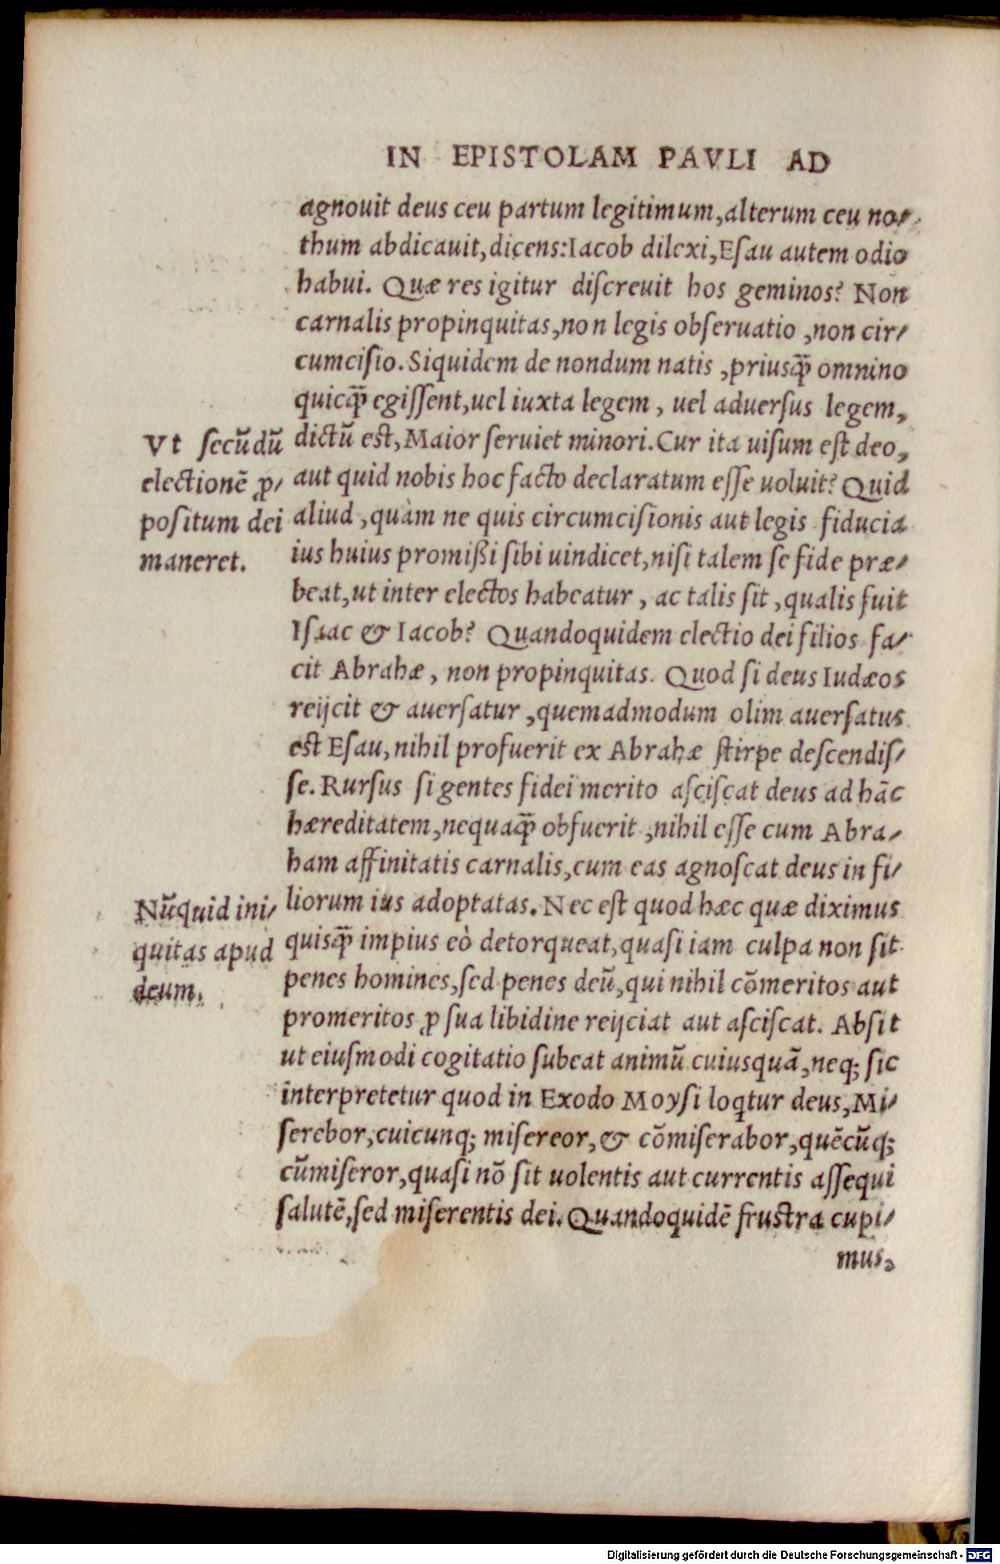 IN EPISTOLAM PAVLI AD
agnouit deus ceu partum legitimum,alterum ceu no/
thum abdicauit,dicens:Iacob dilexi,Esau autem odio
habui. Quæ res igitur discreuit hos geminos? Non
carnalis propinquitas,non legis obseruatio ,non cir/
cumcisio. Siquidem de nondum natis ,priusq̃ omnino
quicq̃ egissent,uel iuxta legem, uel aduersus legem,
dictũ est,Maior seruiet minori.Cur ita uisum est deo,
aut quid nobis hoc facto declaratum esse uoluit? Quid
aliud ,quàm ne quis circumcisionis aut legis fiducia
ius huius promißi sibi uindicet,nisi talem se fide præ/
beat,ut inter electos habeatur, ac talis sit ,qualis fuit
Isaac & Iacob? Quandoquidem electio dei filios fa/
cit Abrahæ, non propinquitas. Quod si deus Iudæos
reijcit & auersatur ,quemadmodum olim auersatus
est Esau,nihil profuerit ex Abrahæ stirpe descendis/
se. Rursus si gentes fidei merito asciscat deus ad hãc
hæreditatem,nequaq̃ obfuerit ,nihil esse cum Abra/
ham affinitatis carnalis,cum eas agnoscat deus in fi/
liorum ius adoptatas. Nec est quod hæc quæ diximus
quisq̃ impius eò detorqueat,quasi iam culpa non sit
penes homines,sed penes deũ,qui nihil cõmeritos aut
promeritos ꝓ sua libidine reijciat aut asciscat. Absit
ut eiusmodi cogitatio subeat animũ cuiusquã,neq; sic
interpretetur quod in Exodo Moysi loqtur deus,Mi/
serebor,cuicunq; misereor,& cõmiserabor,quẽcũq;
cũmiseror,quasi nõ sit uolentis aut currentis assequi
salutẽ,sed miserentis dei. Quandoquidẽ frustra cupi/
mus,
Vt secũdũ
electionẽ ꝓ/
positum dei
maneret.
Nũquid ini/
quitas apud
deum.
Digitalisierung gefördert durch die Deutsche Forschungsgemeinschaft - DFG